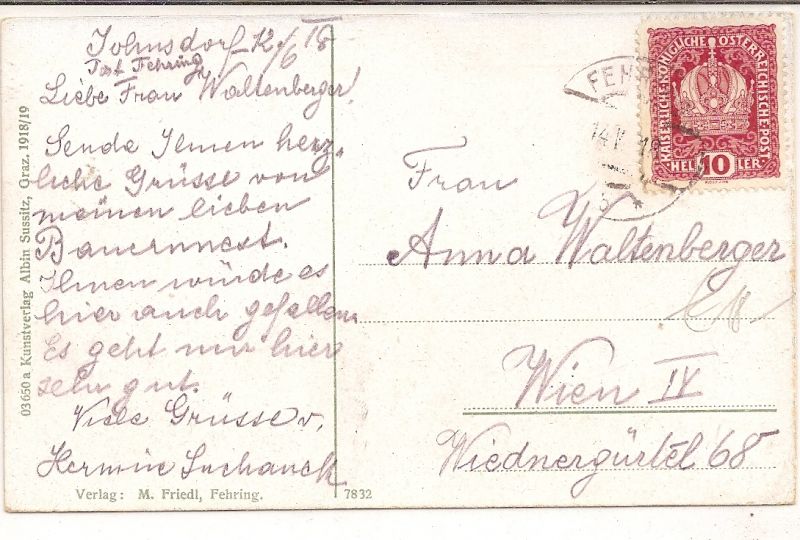 Johnsdorf 12/6 18
Post Fehring
Liebe Frau Waltenberger!
Sende Ihnen herz-
liche Grüsse von
meinen lieben
Bauernnest.
Ihnen würde es
hier auch gefallen.
Es geht mir hier
sehr gut.
Viele Grüsse v.
Hermine Suchanek
Verlag: M. Friedl, Fehring.
7832
03650 a Kunstverlag Albin Sussitz, Graz. 1918/19
KAISERLICHE KÖNIGLICHE ÖSTERREICHISCHE POST
HEL 10 LER
FEH
14
18
Frau
Anna Waltenberger
Wien IV
Wiednergürtel 68